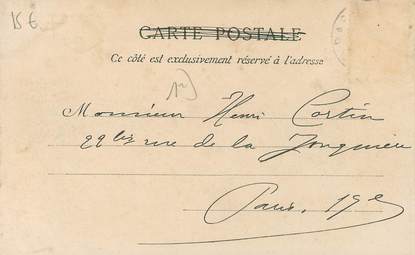 15 €
CARTE POSTALE
Ce côté est exclusivement réservé à l'adresse
Monsieur Henri Cortin
22 bis rue de la Jonquière
Paris, 19e